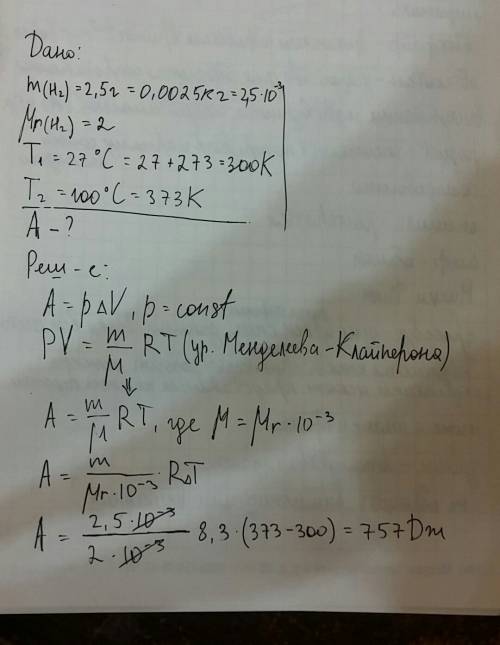 Дано:
m(H₂) = 2,5г = 0,0025кг = 2,5·10⁻³
Mr(H₂) = 2
T₁ = 27°C = 27 + 273 = 300K
T₂ = 100°C = 373K
A - ?
Реш-е:
A = p△V, p = const
PV = m/M RT (ур. Менделеева-Клайперона)
⇓
A = m/M RT, где M = Mr·10⁻³
A = m/Mr·10⁻³ R△T
A = 2,5·10⁻³/2·10⁻³ 8,3·(373-300) = 757 Dm